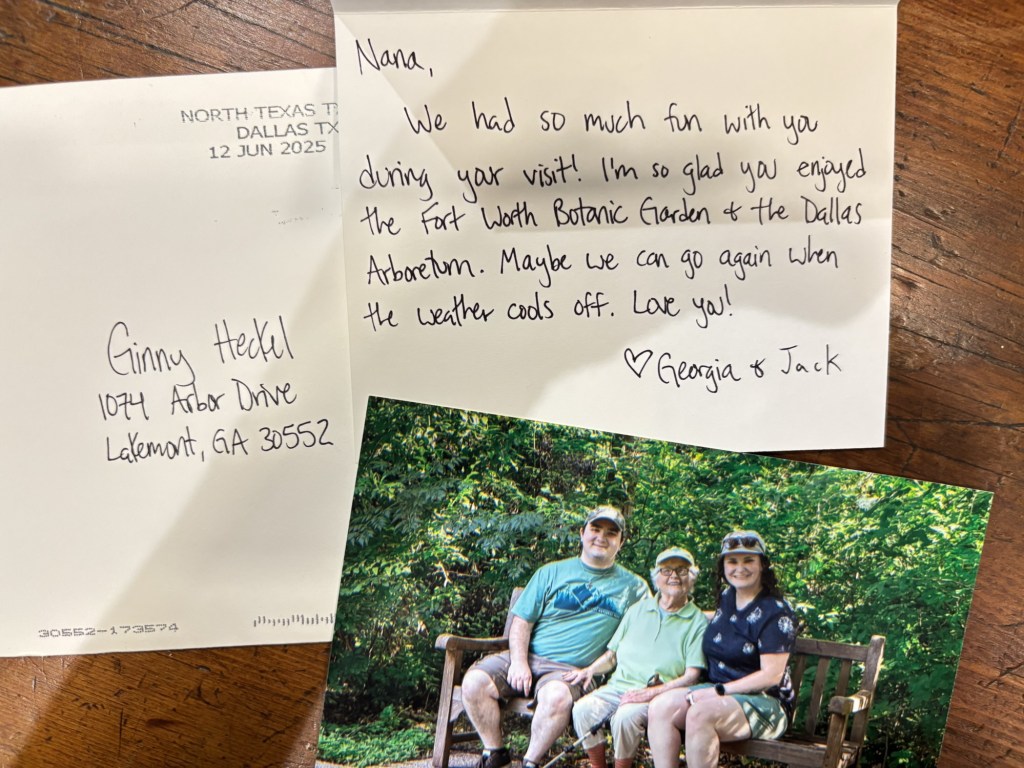 NORTH TEXAS T
DALLAS TX
12 JUN 2025
Ginny Heckel
1074 Arbor Drive
Lakemont, GA 30552
30552-173574
Nana,
We had so much fun with you
during your visit! I'm so glad you enjoyed
the Fort Worth Botanic Garden & the Dallas
Arboretum. Maybe we can go again when
the weather cools off. Love you!
♡ Georgia & Jack